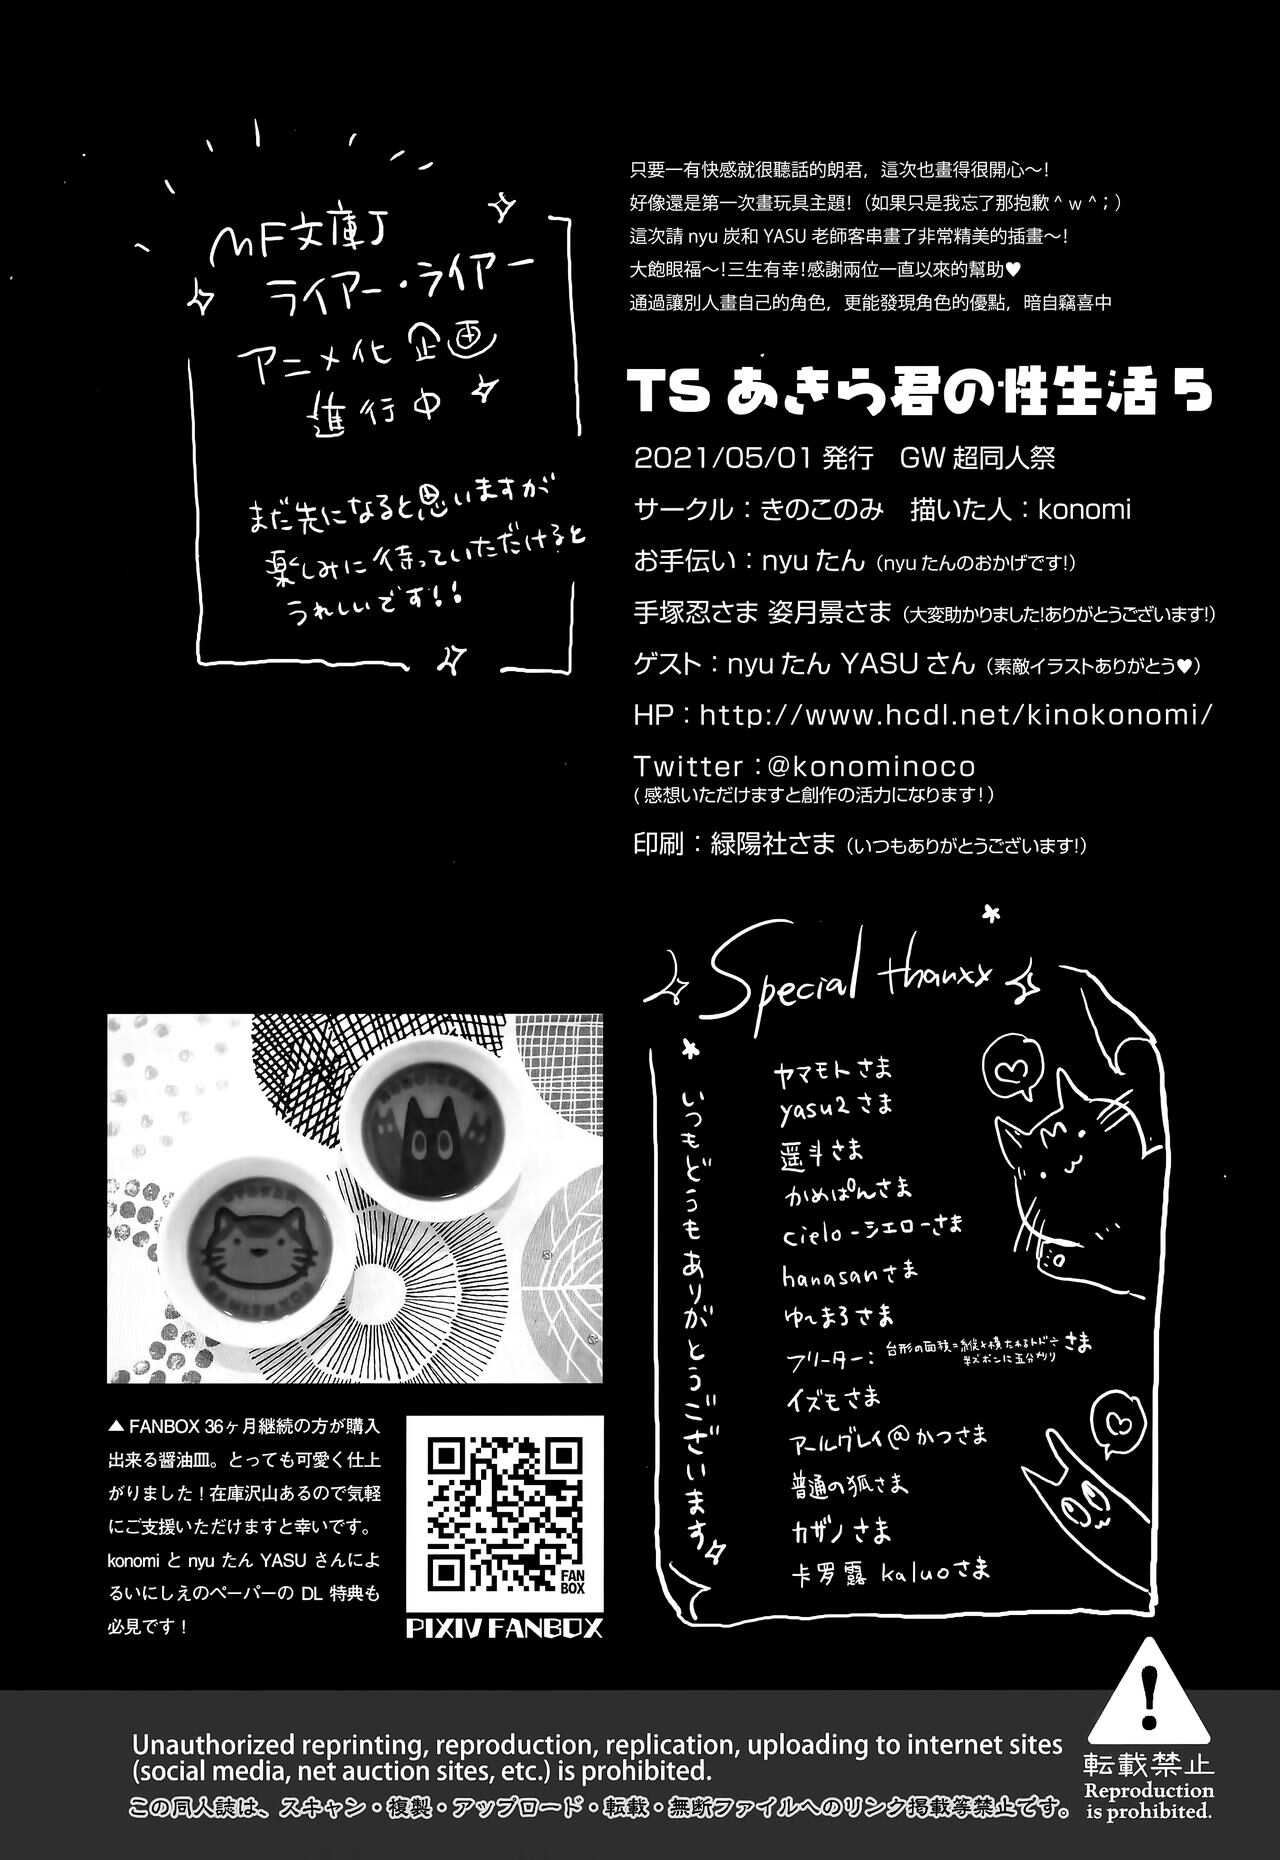 MF文庫J
ライアー・ライアー
アニメ化企画
進行中
まだ先になると思いますが
楽しみに待っていただけると
うれしいです!!
只要一有快感就很聽話的朗君，這次也畫得很開心～！
好像還是第一次畫玩具主題！（如果只是我忘了那抱歉＾ｗ＾；）
這次請 nyu 炭和 YASU 老師客串畫了非常精美的插畫～！
大飽眼福～！三生有幸！感謝兩位一直以來的幫助♥
通過讓別人畫自己的角色，更能發現角色的優點，暗自竊喜中
TS あきら君の性生活 5
2021/05/01 発行　GW 超同人祭
サークル：きのこのみ　描いた人：konomi
お手伝い：nyu たん（nyu たんのおかげです！）
手塚忍さま 姿月景さま（大変助かりました！ありがとうございます！）
ゲスト：nyu たん YASU さん（素敵イラストありがとう♥）
HP：http://www.hcdl.net/kinokonomi/
Twitter：@konominoco
（感想いただけますと創作の活力になります！）
印刷：緑陽社さま（いつもありがとうございます！）
Special thanxx
いつもどうもありがとうございます
ヤマモトさま
yasu2さま
遥斗さま
かめぱんさま
cielo-シエローさま
hanasanさま
ゆ～まろさま
フリーター：台形の面積=縦と横たわるトド÷
半ズボンに五分刈りさま
イズモさま
アールグレイ@かつさま
普通の狐さま
カザノさま
卡罗露 kaluoさま
▲ FANBOX 36ヶ月継続の方が購入
出来る醤油皿。とっても可愛く仕上
がりました！在庫沢山あるので気軽
にご支援いただけますと幸いです。
konomi と nyu たん YASU さんによ
るいにしえのペーパーの DL 特典も
必見です！
FAN
BOX
PIXIV FANBOX
Unauthorized reprinting, reproduction, replication, uploading to internet sites
(social media, net auction sites, etc.) is prohibited.
この同人誌は、スキャン・複製・アップロード・転載・無断ファイルへのリンク掲載等禁止です。
転載禁止
Reproduction
is prohibited.